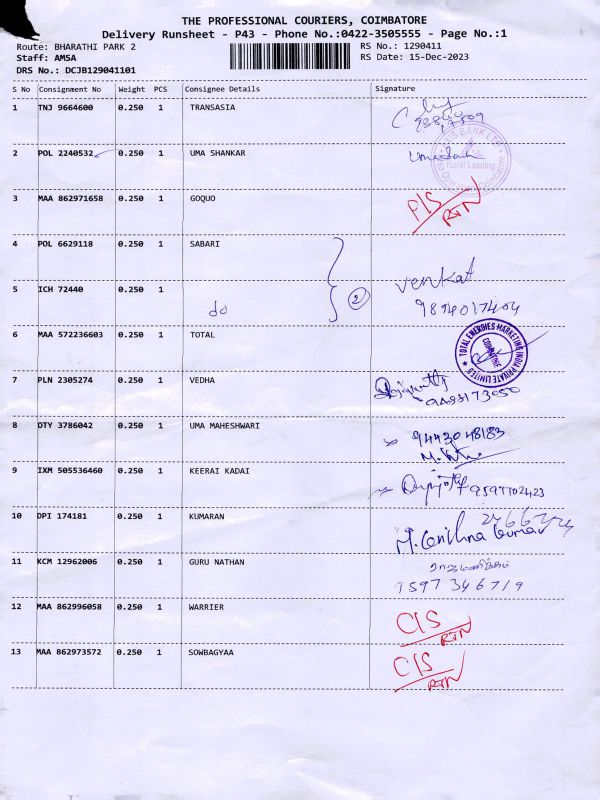 THE PROFESSIONAL COURIERS, COIMBATORE
Delivery Runsheet - P43 - Phone No.:0422-3505555 - Page No.:1
Route: BHARATHI PARK 2 RS No.: 1290411
Staff: AMSA RS Date: 15-Dec-2023
DRS No.: DCJB129041101
S No Consignment No Weight PCS Consignee Details Signature
1 TNJ 9664600 0.250 1 TRANSASIA
2 POL 2240532 0.250 1 UMA SHANKAR
3 MAA 862971658 0.250 1 GOQUO P/S
RTN
4 POL 6629118 0.250 1 SABARI
venkat
5 ICH 72440 0.250 1 do 2 9894017404
6 MAA 572236603 0.250 1 TOTAL TOTAL ENERGIES MARKETING INDIA PRIVATE LIMITED COIMBATORE
7 PLN 2305274 0.250 1 VEDHA
8 DTY 3786042 0.250 1 UMA MAHESHWARI 9443048183
9 IXM 505536460 0.250 1 KEERAI KADAI 9597702423
10 DPI 174181 0.250 1 KUMARAN
11 KCM 12962006 0.250 1 GURU NATHAN
1597346719
12 MAA 862996058 0.250 1 WARRIER C/S
RTN
13 MAA 862973572 0.250 1 SOWBAGYAA C/S
RTN